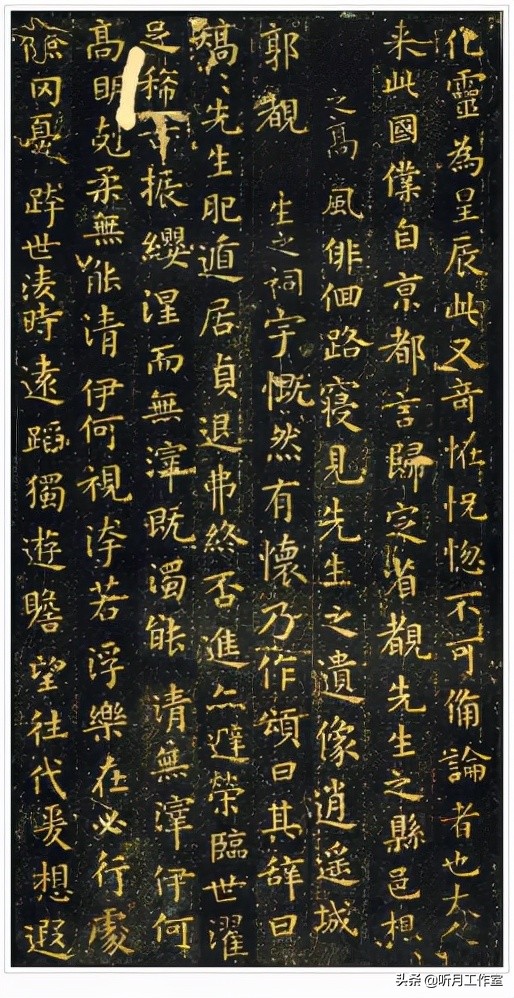 化靈為星辰此又奇恠怳惚不可俻論者也大人
来此國僕自亰都言歸定省覩先生之縣邑想
之高風俳佪路寝見先生之遺像逍遥城
郭覩 生之祠宇慨然有懷乃作頌曰其辞曰
矯〻先生肥遁居貞退弗終否進亦避榮臨世濯
足稀古振纓涅而無滓既濁能清無滓伊何
高明克柔無能清伊何視洿若浮樂在必行處
儉罔憂跨世淩時遠蹈獨遊瞻望往代爰想遐
头条 @听月工作室